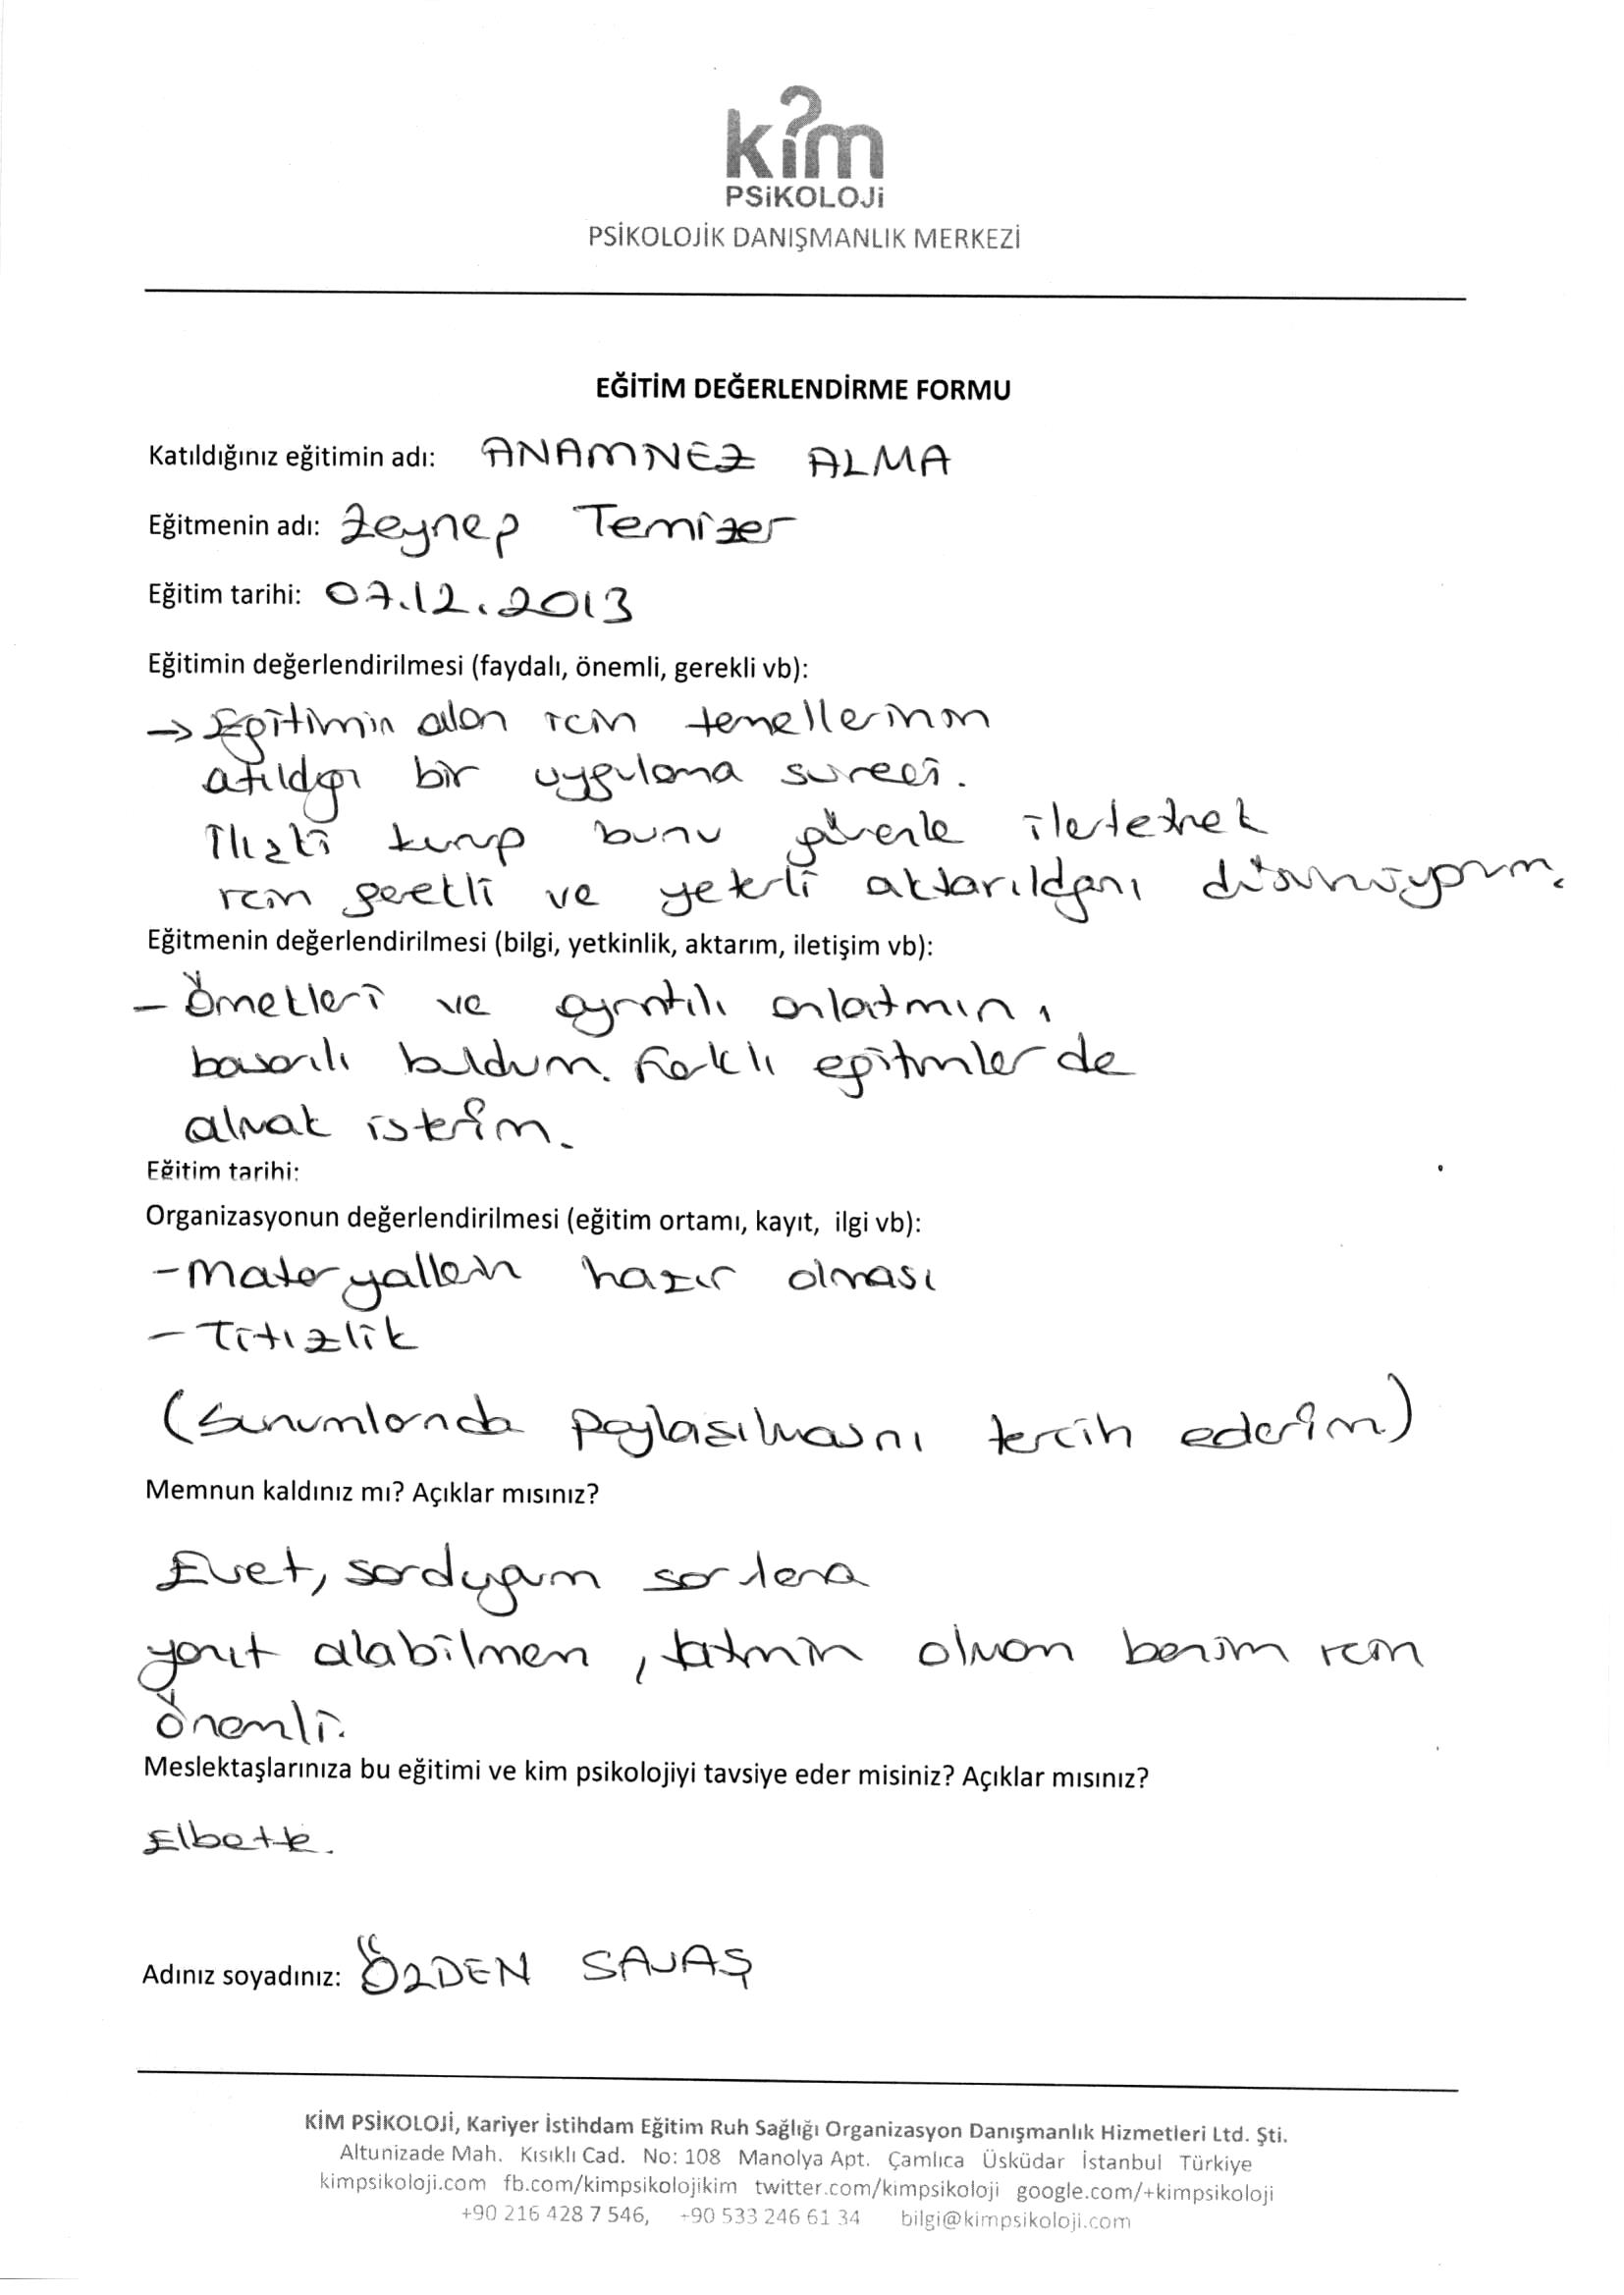 kim
PSiKOLOJi
PSİKOLOJİK DANIŞMANLIK MERKEZİ
EĞİTİM DEĞERLENDİRME FORMU
Katıldığınız eğitimin adı: ANAMNEZ ALMA
Eğitmenin adı: Zeynep Temizer
Eğitim tarihi: 07.12.2013
Eğitimin değerlendirilmesi (faydalı, önemli, gerekli vb):
→ Eğitimin alan için temellerinin
atıldığı bir uygulama süreci.
İlişki kurup bunu güvenle ilerletmek
için gerekli ve yeterli aktarıldığını düşünüyorum.
Eğitmenin değerlendirilmesi (bilgi, yetkinlik, aktarım, iletişim vb):
- Örnekleri ve ayrıntılı anlatımın,
başarılı buldum. Farklı eğitimler de
almak isterim.
Eğitim tarihi:
Organizasyonun değerlendirilmesi (eğitim ortamı, kayıt, ilgi vb):
- Materyallerin hazır olması
- Titizlik
(Sunumlarında paylaşılmasını tercih ederim.)
Memnun kaldınız mı? Açıklar mısınız?
Evet, sorduğum sorulara
yanıt alabilmem, tatmin olmam benim için
önemli.
Meslektaşlarınıza bu eğitimi ve kim psikolojiyi tavsiye eder misiniz? Açıklar mısınız?
Elbette.
Adınız soyadınız: ÖZDEN SAVAŞ
KİM PSİKOLOJİ, Kariyer İstihdam Eğitim Ruh Sağlığı Organizasyon Danışmanlık Hizmetleri Ltd. Şti.
Altunizade Mah. Kısıklı Cad. No: 108 Manolya Apt. Çamlıca Üsküdar İstanbul Türkiye
kimpsikoloji.com fb.com/kimpsikolojikim twitter.com/kimpsikoloji google.com/+kimpsikoloji
+90 216 428 7 546, +90 533 246 61 34 bilgi@kimpsikoloji.com